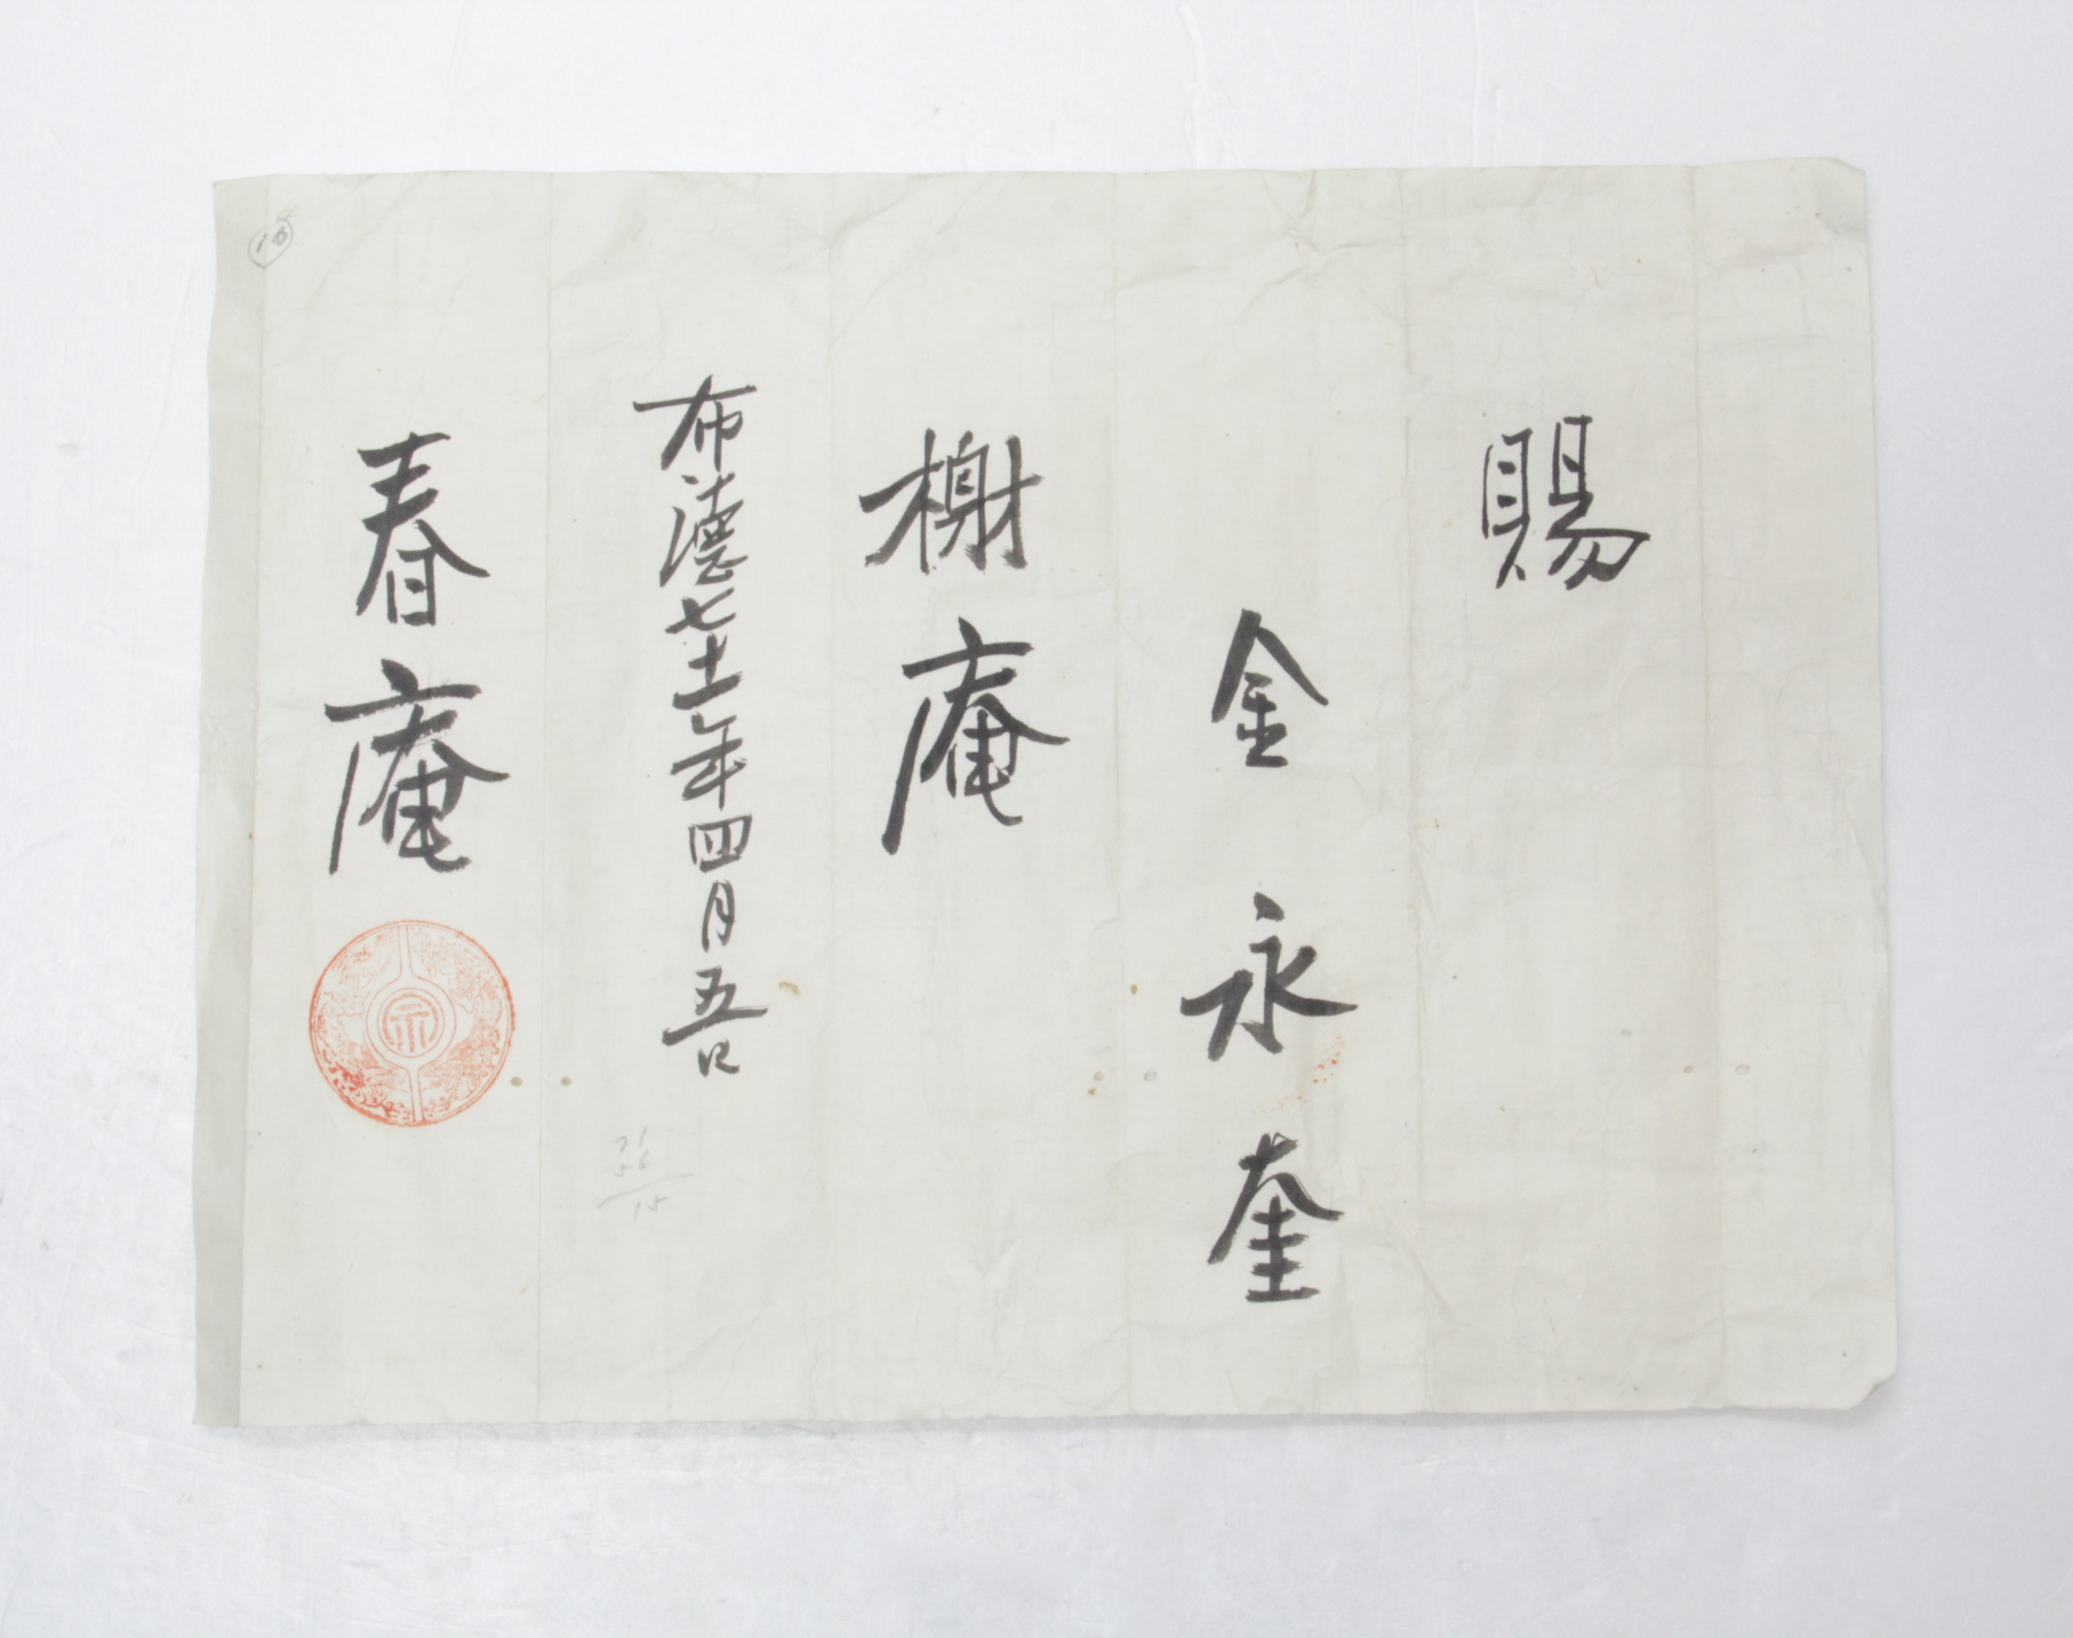 賜
金永奎
榭庵
布德七十一年四月五日
春庵
71
56
15